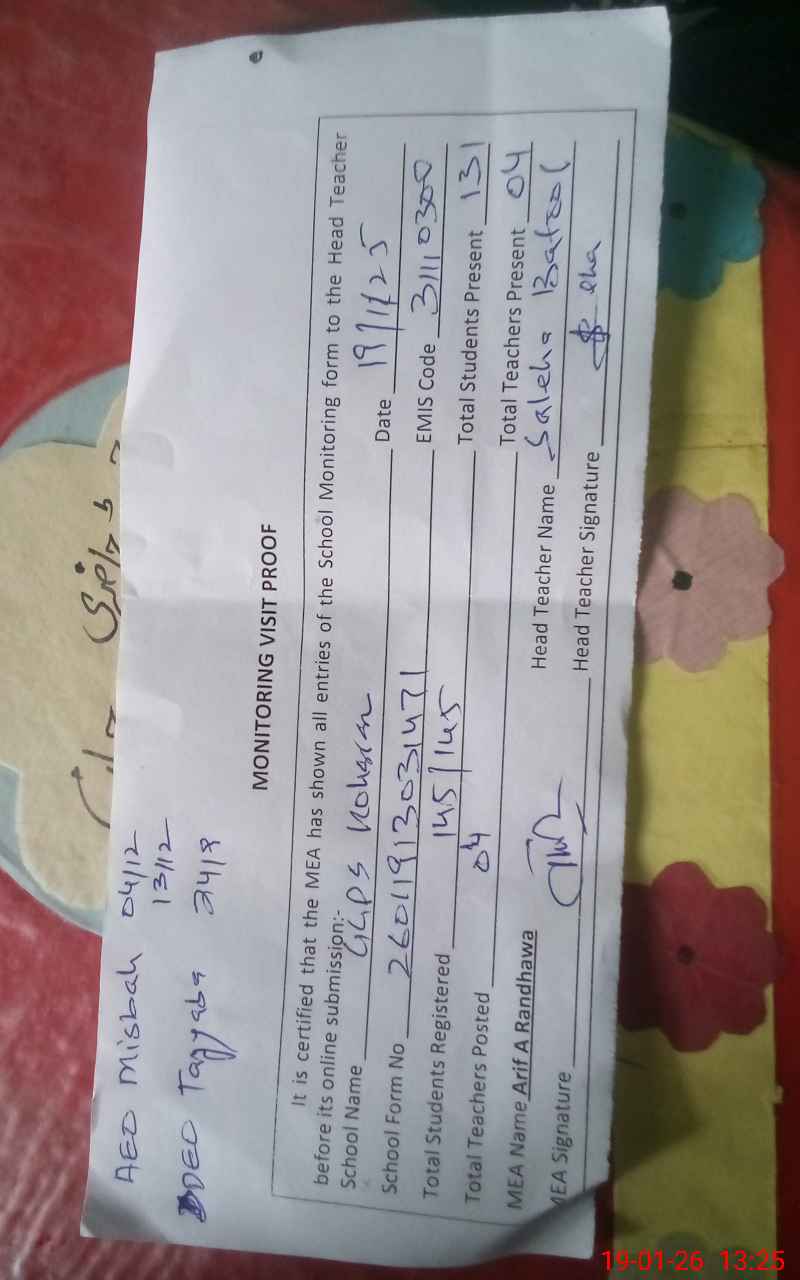 AEO Misbah 04/12
13/12
DDEO Tayyaba 24/8
MONITORING VISIT PROOF
It is certified that the MEA has shown all entries of the School Monitoring form to the Head Teacher
before its online submission:-
School Name GGPS Koharan Date 19/1/25
School Form No 26011913031471 EMIS Code 31110300
Total Students Registered 145/145 Total Students Present 131
Total Teachers Posted 04 Total Teachers Present 04
MEA Name Arif A Randhawa Head Teacher Name Saleha Batool
MEA Signature Head Teacher Signature
19-01-26 13:25